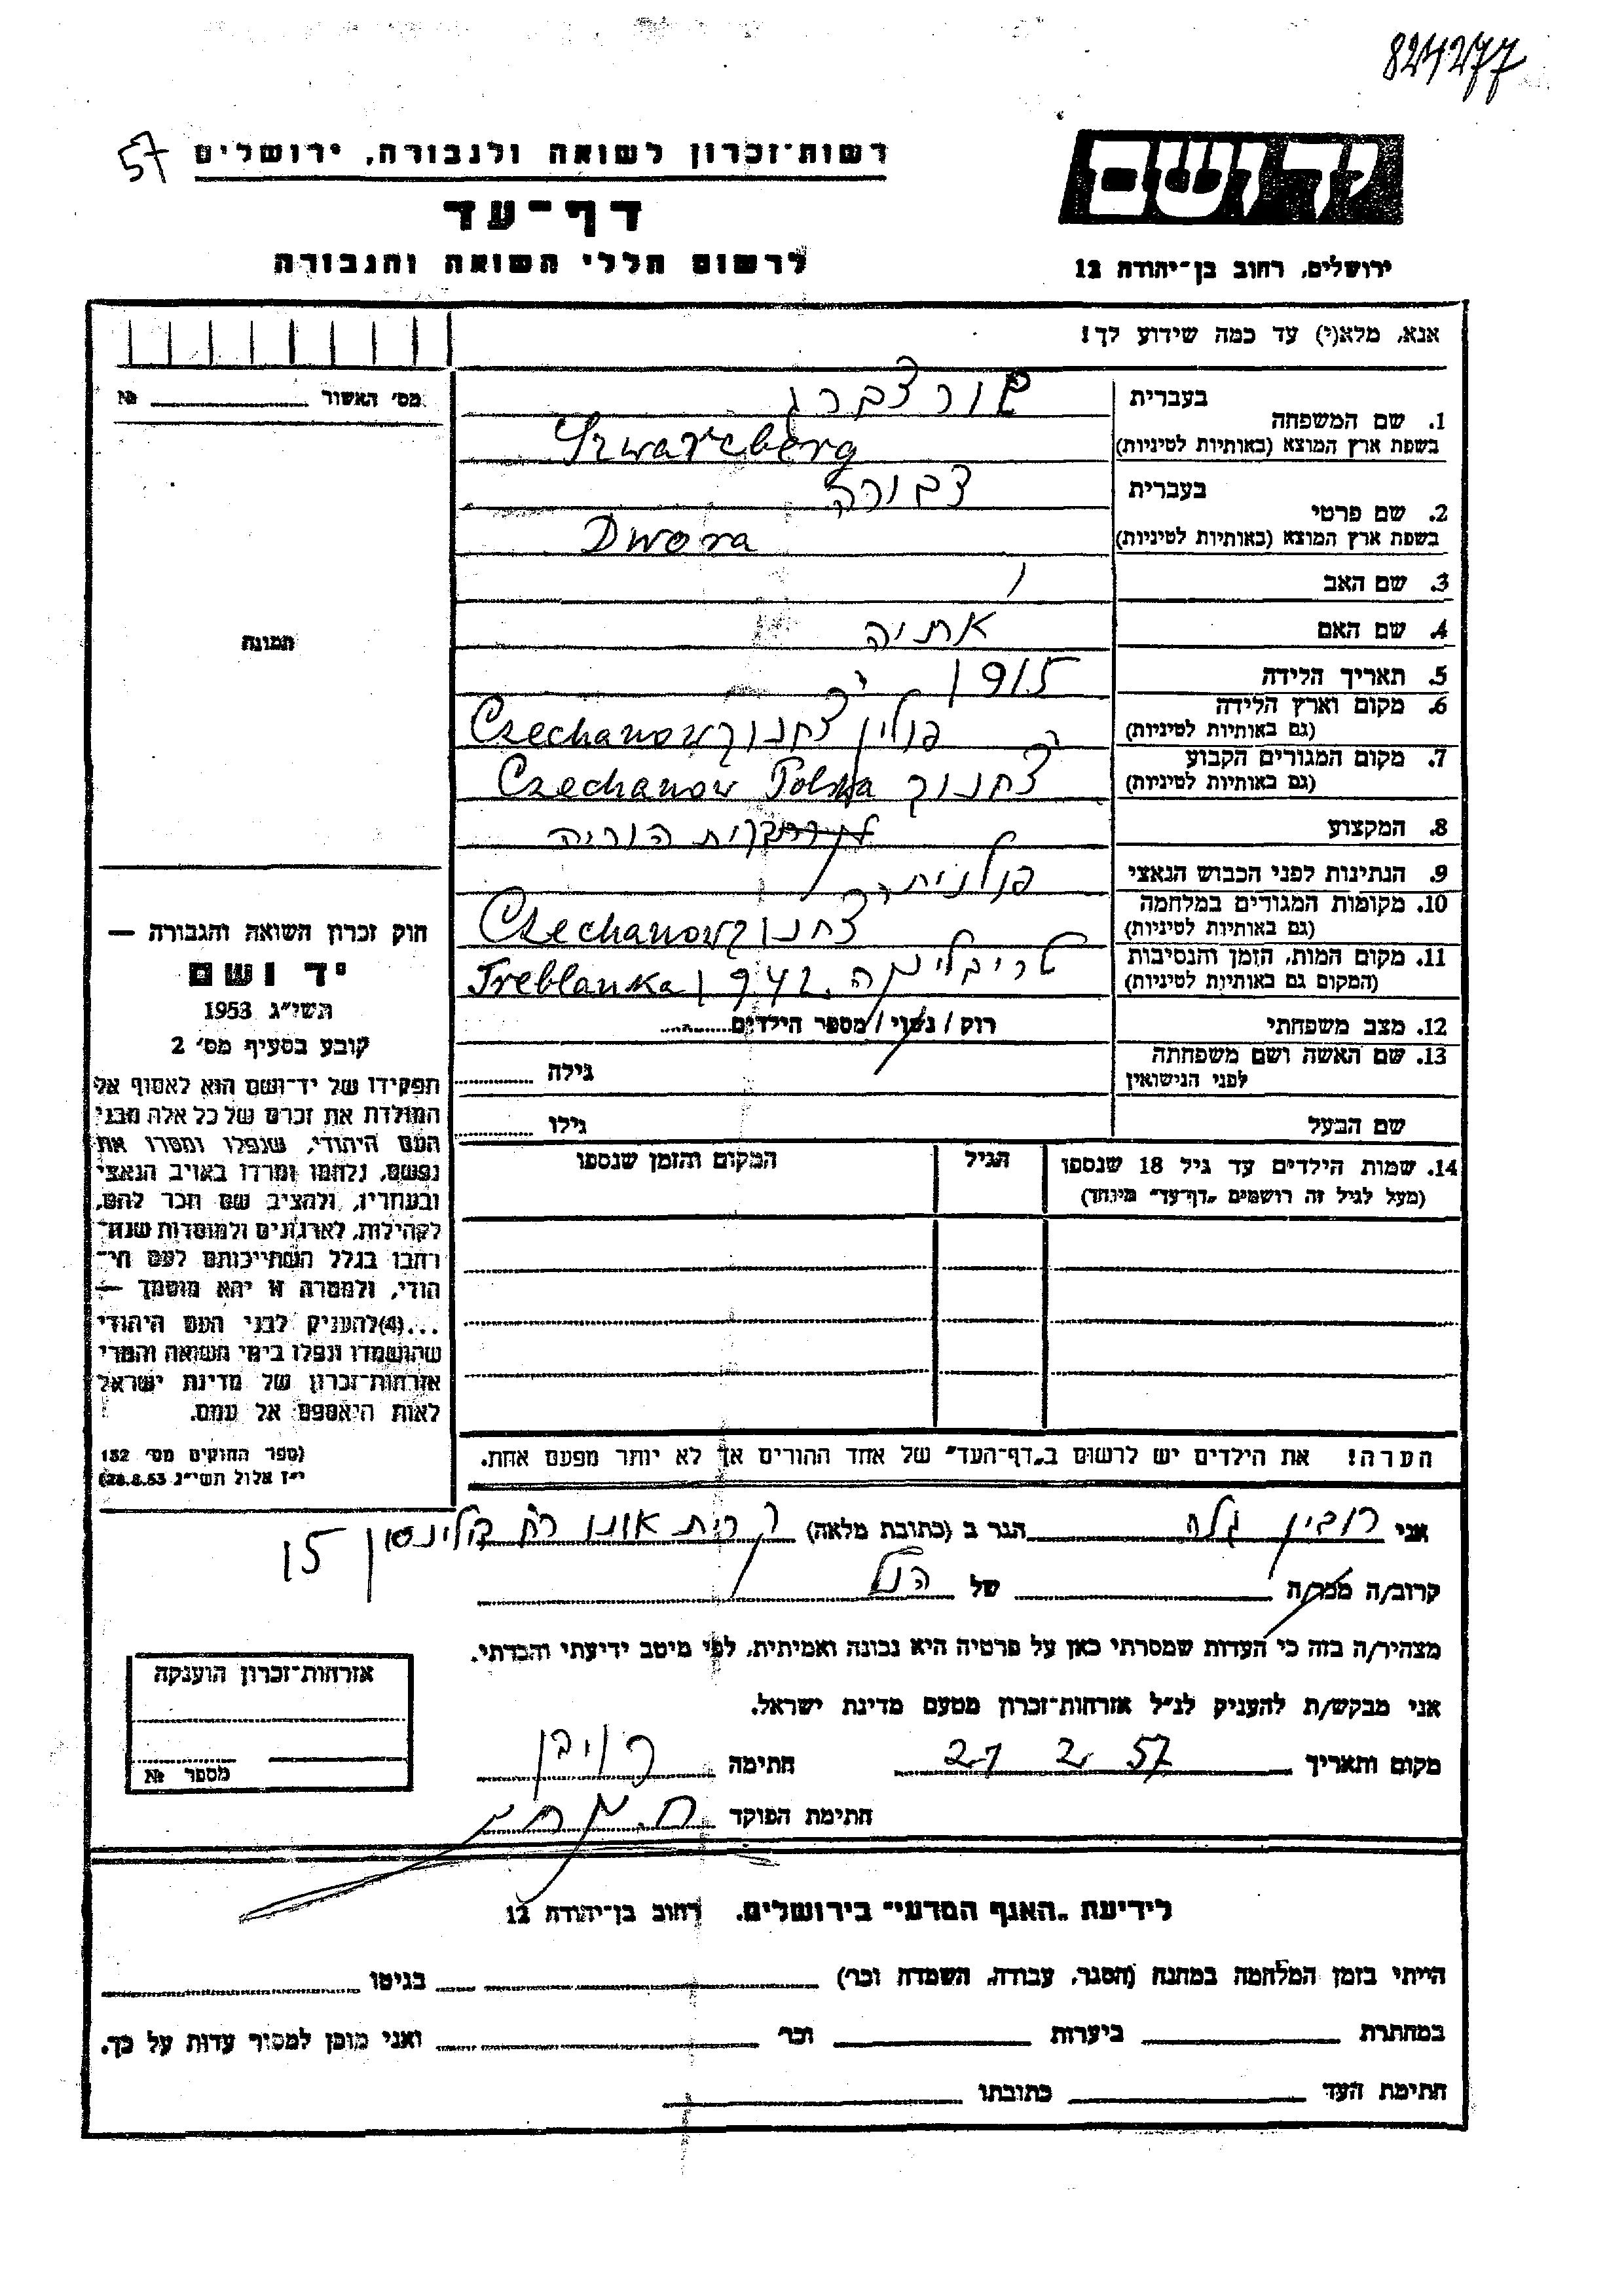 824277
57
רשות־זכרון לשואה ולגבורה, ירושלים
יד ושם
דף־עד
לרשום חללי השואה והגבורה
ירושלים, רחוב בן־יהודה 12
אנא, מלא(י) עד כמה שידוע לך!
מס׳ האשור № 
1. שם המשפחה בעברית שורצברג
בשפת ארץ המוצא (באותיות לטיניות) Szwarcberg
2. שם פרטי בעברית דבורה
בשפת ארץ המוצא (באותיות לטיניות) Dwora
3. שם האב
4. שם האם אתיה
5. תאריך הלידה 1915
6. מקום וארץ הלידה (גם באותיות לטיניות) פולין צחנוב Czechanow
7. מקום המגורים הקבוע (גם באותיות לטיניות) צחנוב Czechanow Polska
8. המקצוע
9. הנתינות לפני הכבוש הנאצי פולנית
10. מקומות המגורים במלחמה (גם באותיות לטיניות) צחנוב Czechanow
11. מקום המות, הזמן והנסיבות (המקום גם באותיות לטיניות) טריבלינקה. 1942 Treblanka
12. מצב משפחתי רוק / נשוי / מספר הילדים
13. שם האשה ושם משפחתה לפני הנישואין גילה
שם הבעל גילו
14. שמות הילדים עד גיל 18 שנספו הגיל המקום והזמן שנספו
(מעל לגיל זה רושמים „דף־עד״ מיוחד)
הערה! את הילדים יש לרשום ב„דף־העד״ של אחד ההורים אך לא יותר מפעם אחת.
תמונה
חוק זכרון השואה והגבורה —
יד ושם
תשי״ג 1953
קובע בסעיף מס׳ 2
תפקידו של יד־ושם הוא לאסוף אל
המולדת את זכרם של כל אלה מבני
העם היהודי, שנפלו ומסרו את
נפשם, נלחמו ומרדו באויב הנאצי
ובעוזריו, ולהציב שם וזכר להם,
לקהילות, לארגונים ולמוסדות שנח־
רבו בגלל השתייכותם לעם הי־
הודי, ולמטרה זו יהא מוסמך —
...(4) להעניק לבני העם היהודי
שהושמדו ונפלו בימי השואה והמרי
אזרחות־זכרון של מדינת ישראל
לאות היאספם אל עמם.
(ספר החוקים מס׳ 132
י״ז אלול תשי״ג 28.8.53)
אני רובין הגר ב (כתובת מלאה) קרית אונו 15
קרוב/ה מכר/ה של הנ״ל
מצהיר/ה בזה כי העדות שמסרתי כאן על פרטיה היא נכונה ואמיתית, לפי מיטב ידיעתי והכרתי.
אני מבקש/ת להעניק לנ״ל אזרחות־זכרון מטעם מדינת ישראל.
מקום ותאריך 27 2 57 חתימה רובין
חתימת הפוקד
אזרחות־זכרון הוענקה
מספר №
לידיעת „האגף המדעי״ בירושלים, רחוב בן־יהודה 12
הייתי בזמן המלחמה במחנה (הסגר, עבודה, השמדה וכו׳) בגיטו
במחתרת ביערות וכו׳ ואני מוכן למסור עדות על כך.
חתימת העד כתובתו